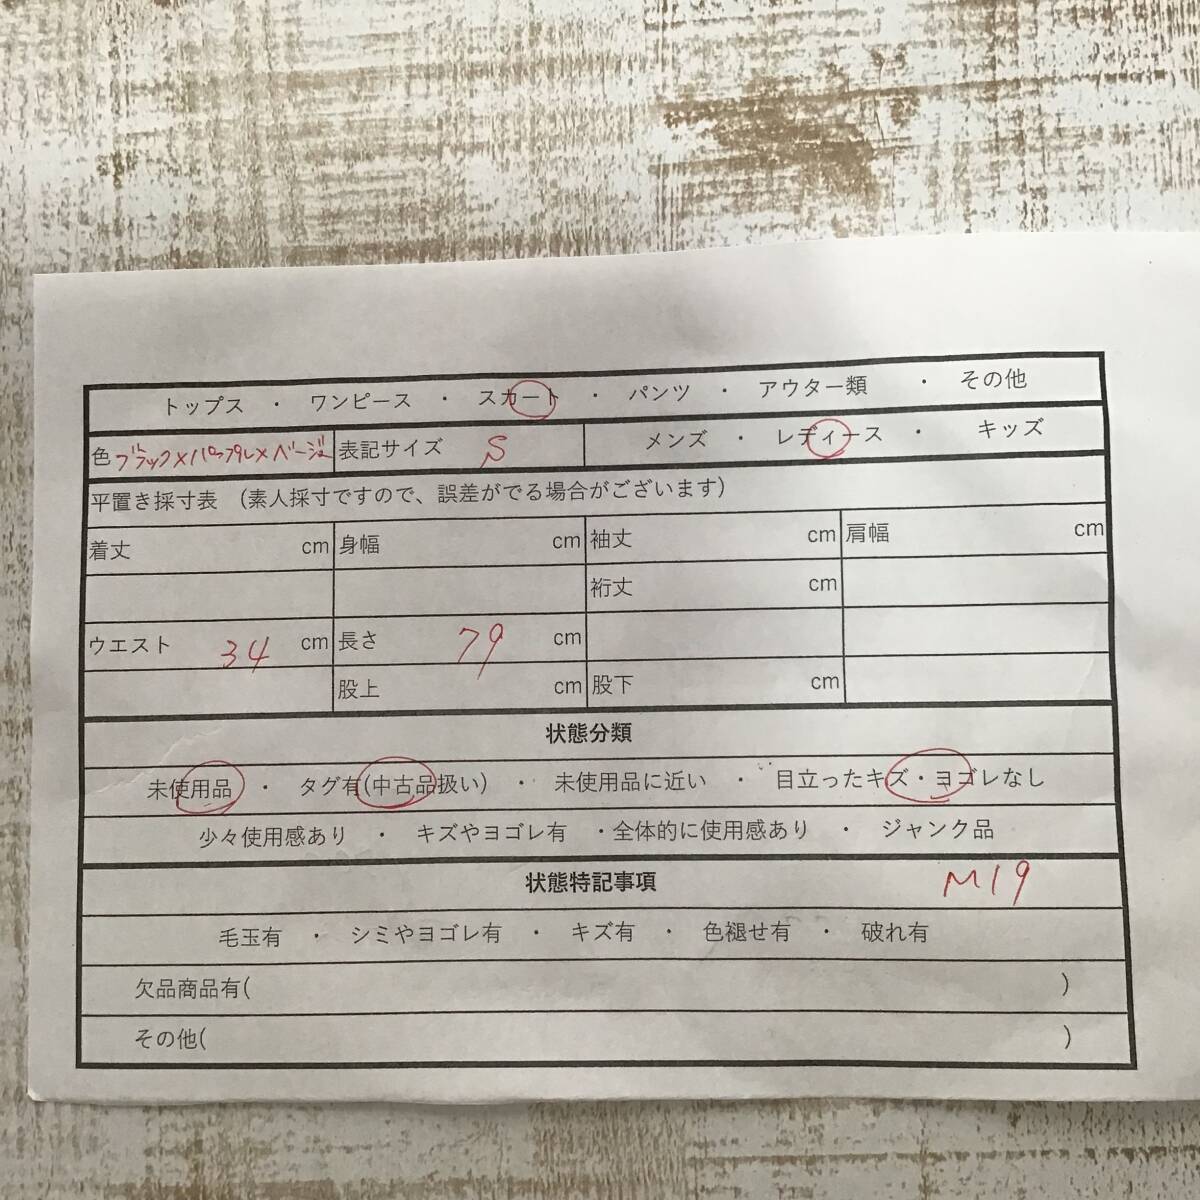 トップス ・ ワンピース ・ スカート ・ パンツ ・ アウター類 ・ その他
色 ブラック×パープル×ベージュ 表記サイズ S メンズ ・ レディース ・ キッズ
平置き採寸表 (素人採寸ですので、誤差がでる場合がございます)
着丈 cm 身幅 cm 袖丈 cm 肩幅 cm
裄丈 cm
ウエスト 34 cm 長さ 79 cm
股上 cm 股下 cm
状態分類
未使用品 ・ タグ有(中古品扱い) ・ 未使用品に近い ・ 目立ったキズ・ヨゴレなし
少々使用感あり ・ キズやヨゴレ有 ・全体的に使用感あり ・ ジャンク品
状態特記事項 M19
毛玉有 ・ シミやヨゴレ有 ・ キズ有 ・ 色褪せ有 ・ 破れ有
欠品商品有( )
その他( )